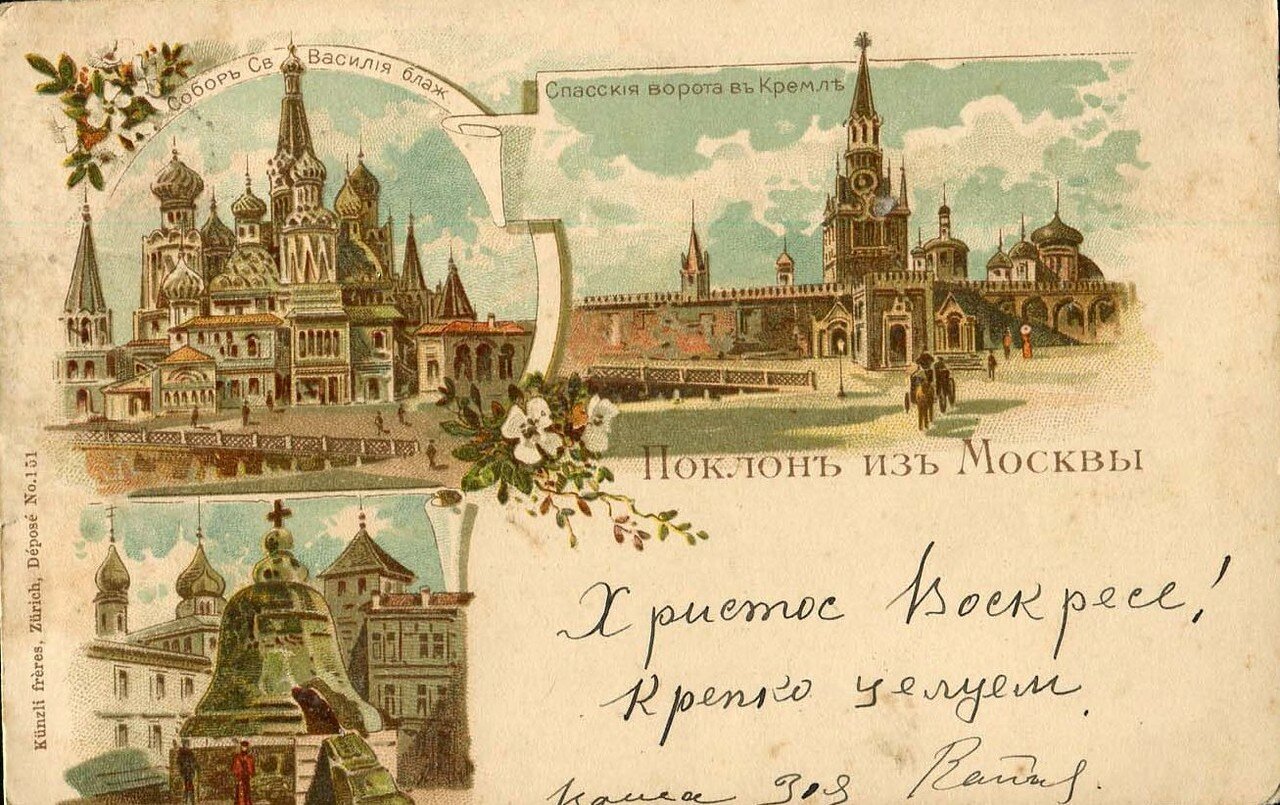 Соборъ Св Василія блаж.
Спасскія ворота въ Кремлѣ
Поклонъ изъ Москвы
Христос Воскресе!
Крепко целуем
Зоя
Künzli frères, Zürich, Déposé No.151